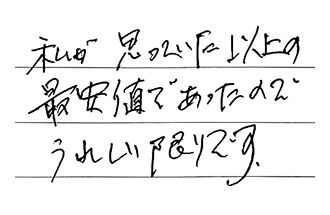 私が思っていた以上の
最安値であったので
うれしい限りです。